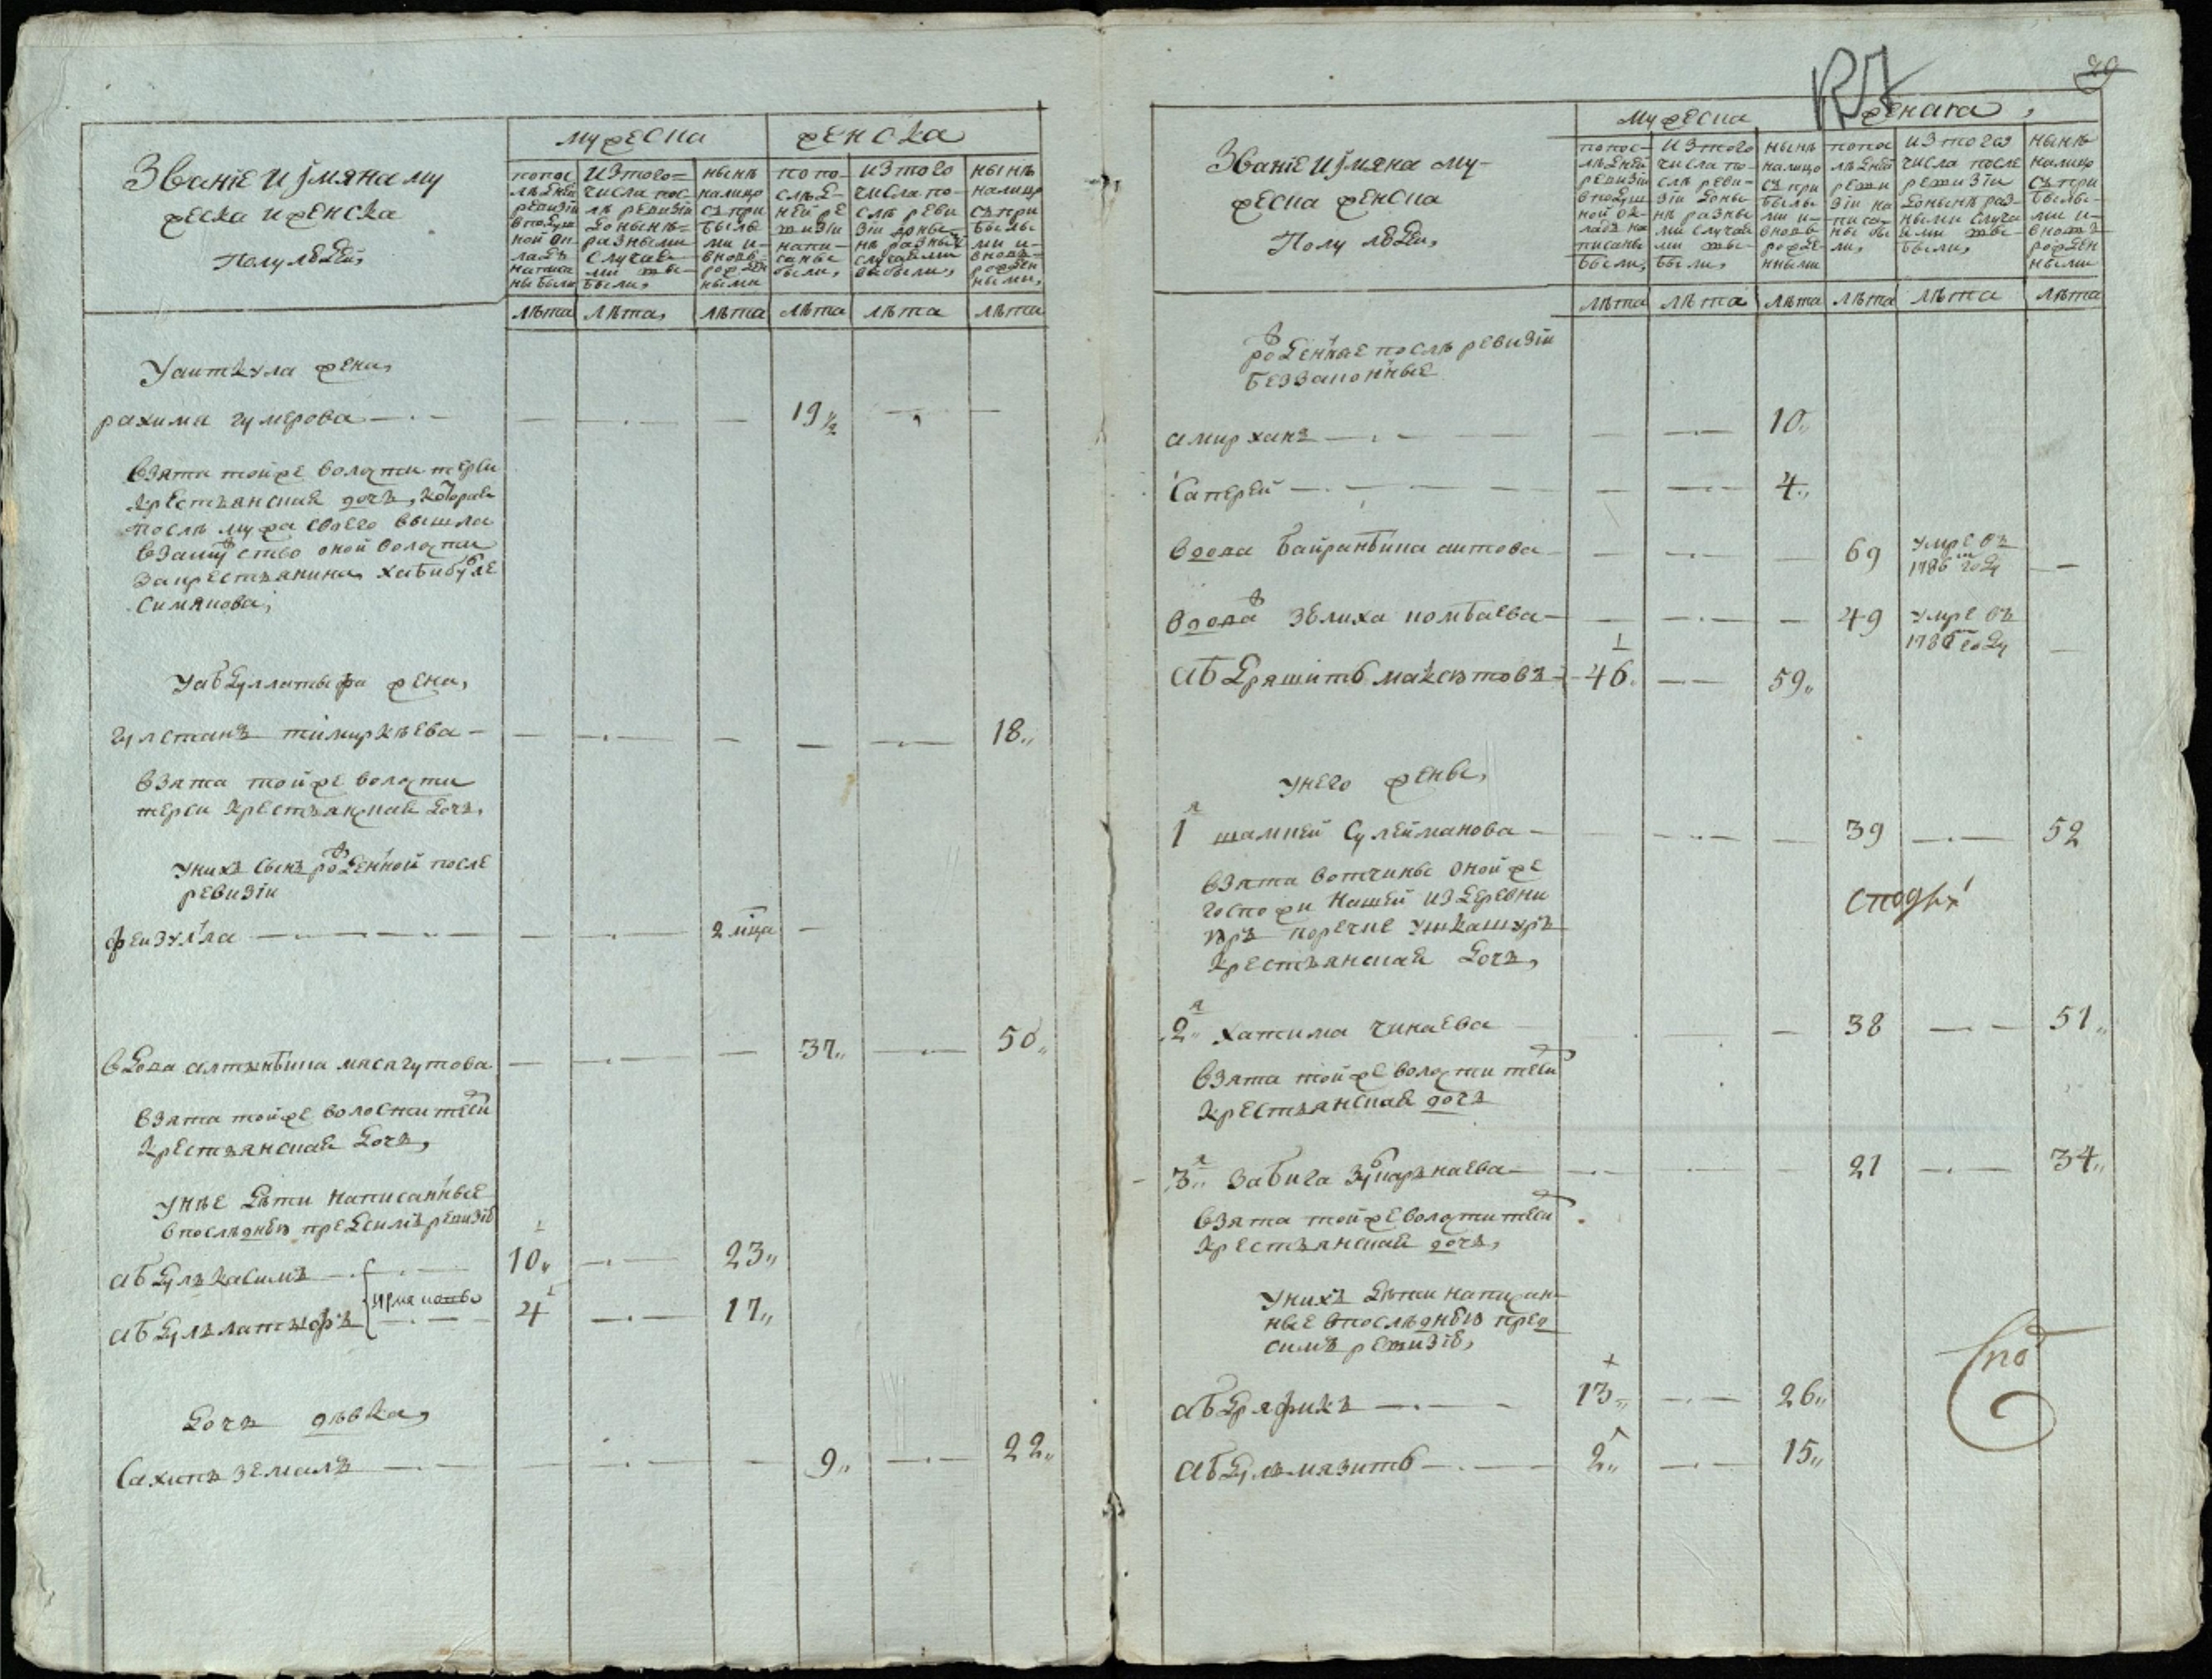 Званiе и ймяна му
жеска и женска
Полу людей,
мужеска
женска
попос
лѣдней
ревизiи
вподуш
ной ок
ладъ
написа
ны были
изтого
числа пос
лѣ ревизiи
донынѣ
разными
случая
ми вы
были,
нынѣ
налицо
съ при
былы
ми и
вновь
рожден
ными
попо
слѣд
ней ре
визiи
напи
саны
были,
изтого
числа по
слѣ реви
зiи доны
нѣ разны
случаями
выбыли,
нынѣ
налицо
съ при
былы
ми и
вновь
рожден
ными,
лѣта лѣта, лѣта лѣта лѣта лѣта
Уаиткула жена,
рахима гумерова — 19 1/2
взята тойже волости терси
крестьянская дочь, которая
послѣ мужа своего вышла
взамужство оной волости
закрестьянина хабибулле
симякова,
Уабдуллатыфа жена,
гулстанъ тимиркѣева — 18,,
взята тойже волости
терси крестьянская дочь,
Унихъ сынъ рожденной после
ревизiи
феизулла — 2 мца
вдова алтынбика масагутова — 37,, — 50,,
взята тойже волости терси
крестьянская дочь,
Унѣе дѣти написанные
впослѣднею предсимъ ревизiю
абдулькасимъ — 10,, — 23,,
абдульлатыфъ — 4 — 17,,
дочь дѣвка,
Сахипъ земалъ — 9,, — 22,,
29
Званiе и ймяна му-
жеска женска
Полу людей,
мужеска
женска,
попос-
лѣдней
ревизiи
вподуш
ной ок-
ладъ на
писаны
были,
изтого
числа по-
слѣ реви-
зiи доны
нѣ разны
ми случая
ми вы-
были,
нынѣ
налицо
съ при
былы
ми и-
вновь
рожде
нными
попо
лѣдней
реви
зiи на
писа-
ны бы
ли,
изтого
числа после
ревизiи
донынѣ раз-
ными случа
ями вы-
были,
нынѣ
налицо
съ при
былы-
ми и-
вновь
рожден
ными
лѣта лѣта лѣта лѣта лѣта лѣта
рожденные послѣ ревизiи
беззаконные
амирханъ — 10,,
Саперей — 4,,
вдова байранбика аитова — 69 умре въ
1786м году
вдова зюлиха комбаева — 49 умре въ
году
абдряшитъ максютовъ — 46. — 59,,
Унего жены,
1я шамшей Сулейманова — 39 — 52
взята вотчины оной же
госпожи нашей издеревни
крестьянская дочь,
2я хатима чинаева — 38 — 51,,
взята тойже волости терси
крестьянская дочь
3я забига — 21 — 34,,
взята тойже волости терси
крестьянская дочь,
Унихъ дѣти написан
ные впослѣднею пред
симъ ревизiю,
абдряфикъ — 13,, — 26,,
абдульмязитъ — 2,, — 15,,